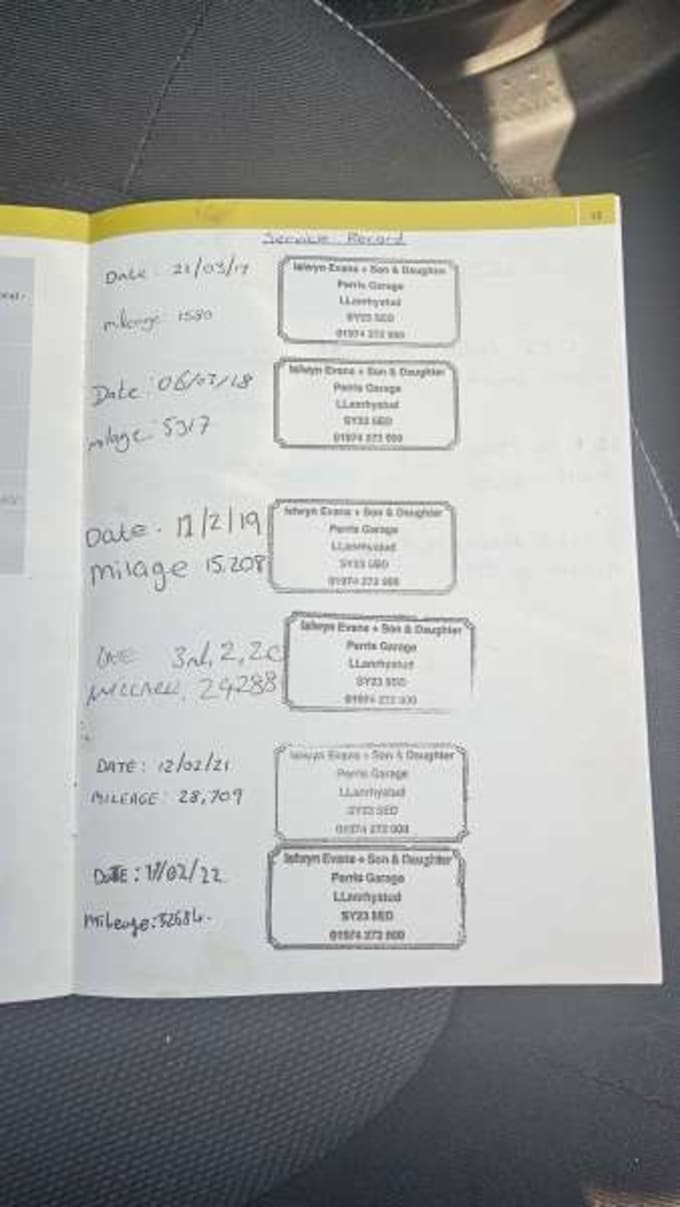 Service Record
Date: 21/03/17
milage: 1580
Ialwyn Evans + Son & Daughter
Perris Garage
LLanrhystud
SY23 5ED
01974 272 900
Date: 06/03/18
milage: 5317
Ialwyn Evans + Son & Daughter
Perris Garage
LLanrhystud
SY23 5ED
01974 272 900
Date. 11/2/19
milage 15.208
Ialwyn Evans + Son & Daughter
Perris Garage
LLanrhystud
SY23 5ED
01974 272 900
3rd, 2, 20
24288
Ialwyn Evans + Son & Daughter
Perris Garage
LLanrhystud
SY23 5ED
01974 272 900
DATE: 12/02/21
MILEAGE: 28,709
Ialwyn Evans + Son & Daughter
Perris Garage
LLanrhystud
SY23 5ED
01974 272 900
DATE: /02/22
Mileage: 32684.
Ialwyn Evans + Son & Daughter
Perris Garage
LLanrhystud
SY23 5ED
01974 272 900